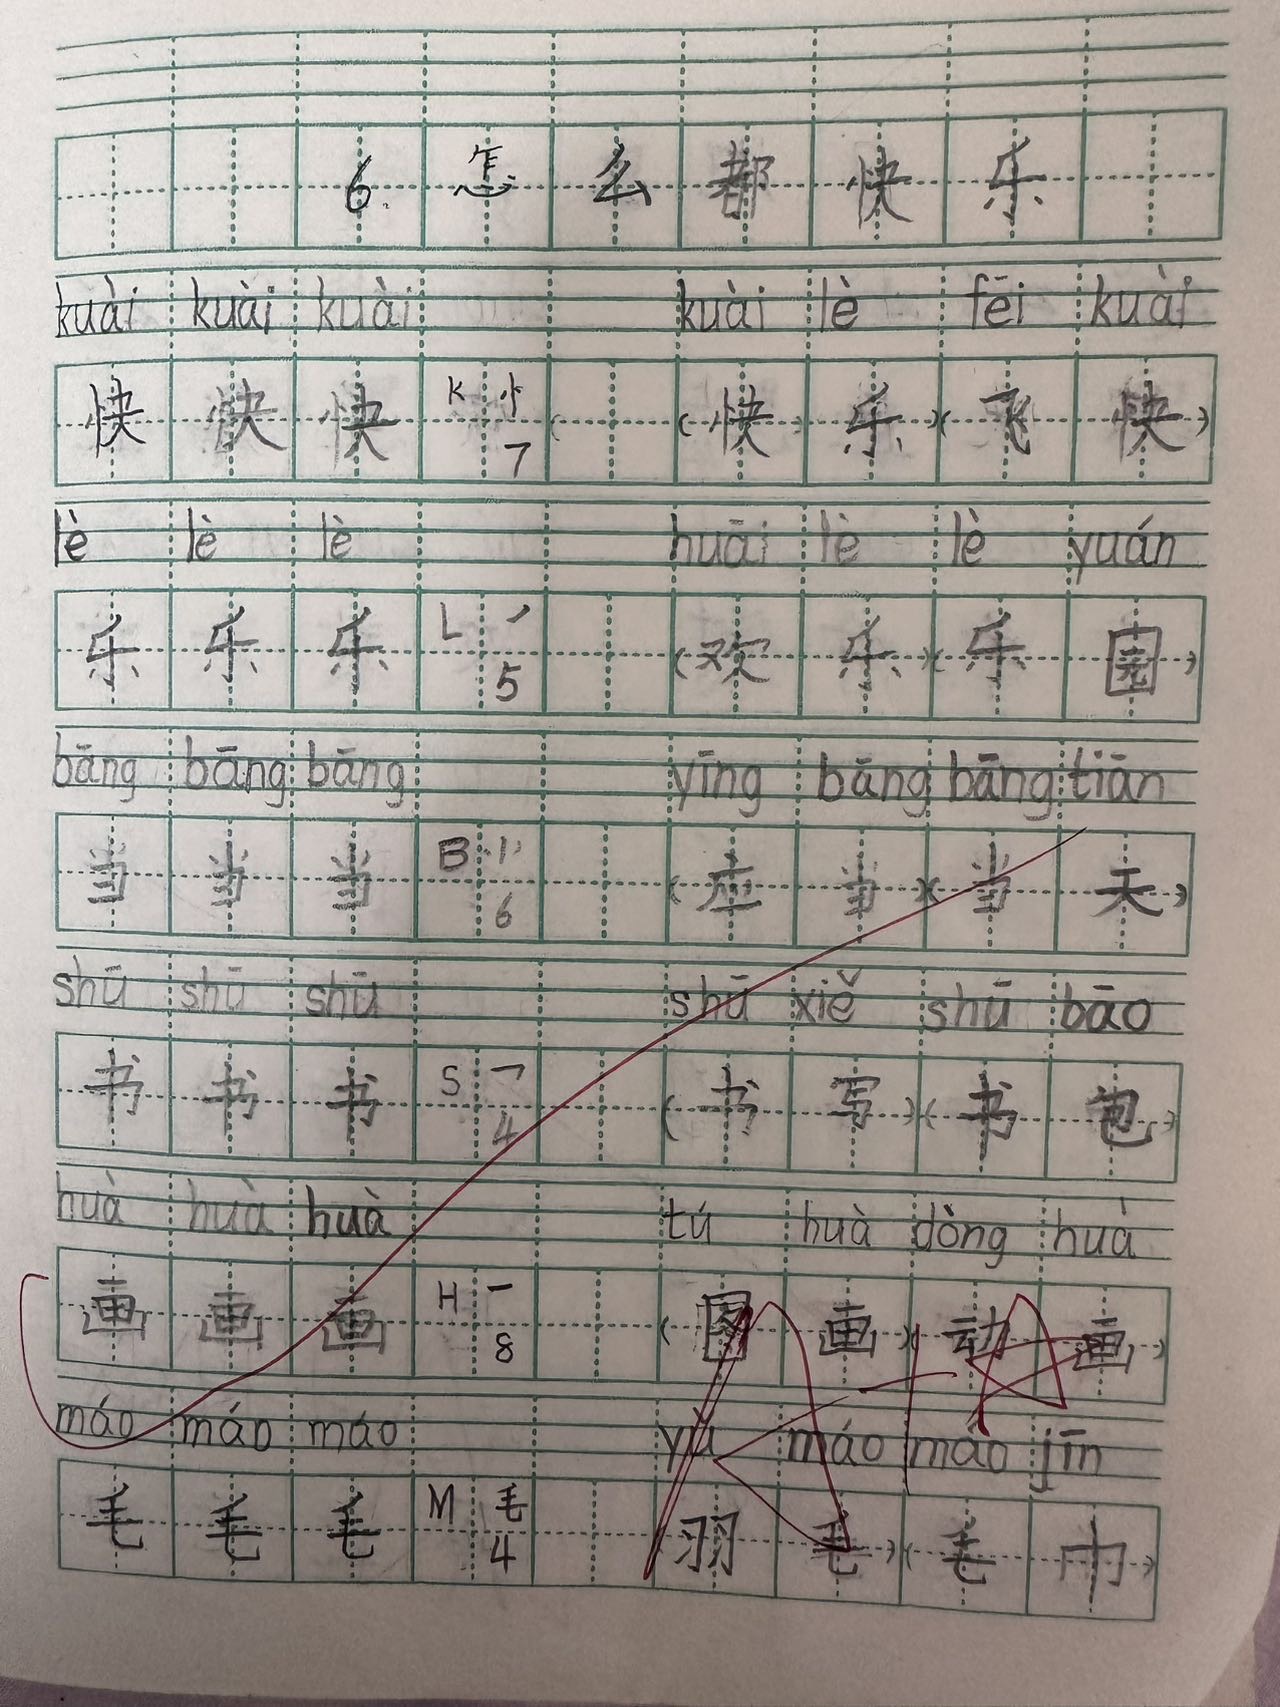 6. 怎么都快乐
kuài kuài kuài kuài lè fēi kuài
快 快 快 K 忄 7 (快乐)(飞快)
lè lè lè huāi lè lè yuán
乐 乐 乐 L ㇒ 5 (欢乐)(乐园)
bāng bāng bāng yīng bāng bāng tiān
当 当 当 B ⺌ 6 (应当)(当天)
shū shū shū shū xiě shū bāo
书 书 书 S ㇕ 4 (书写)(书包)
huà huà huà tú huà dòng huà
画 画 画 H 一 8 (图画)(动画)
máo máo máo yǔ máo máo jīn
毛 毛 毛 M 毛 4 (羽毛)(毛巾)